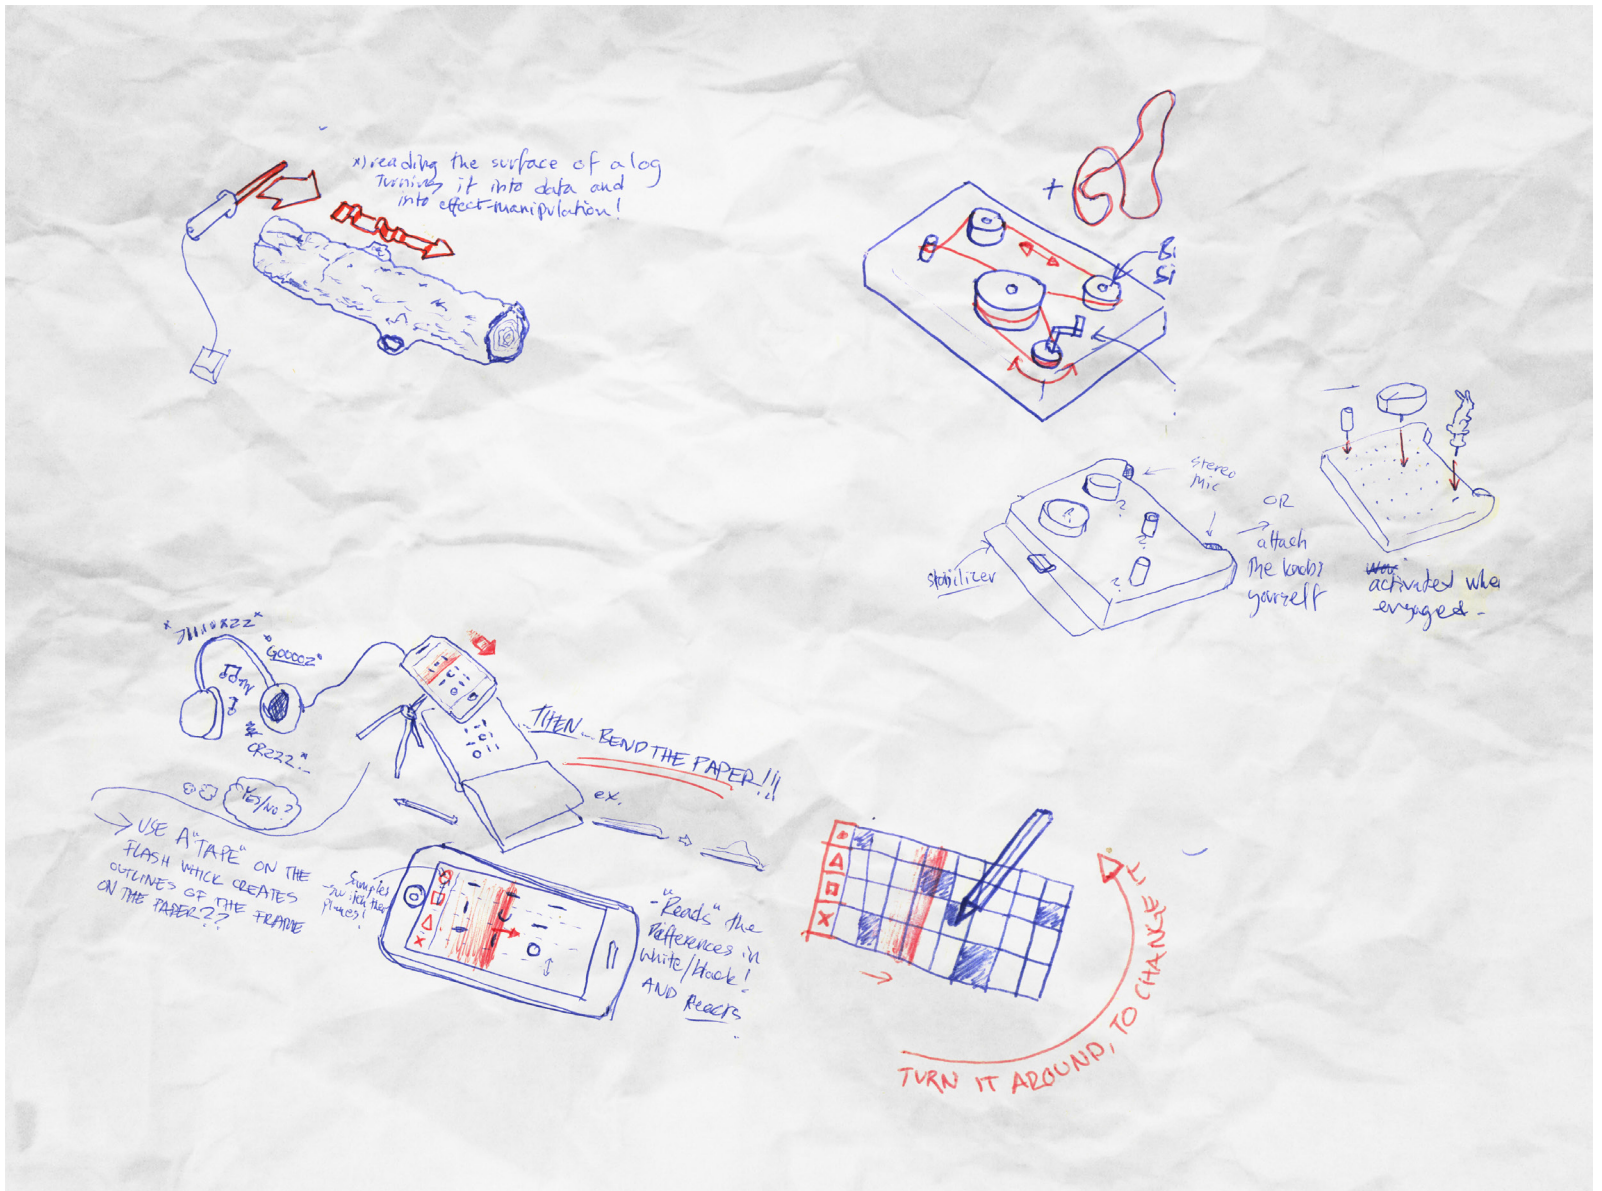 x) reading the surface of a log
Turning it into data and
into effect-manipulation!
+
Bi
Si
stereo
mic
OR
attach
the knobs
yourself
stabilizer
?
?
?
?
activated whe
engaged-
"GOOOOZ"
CRZZZ!
THEN... BEND THE PAPER!!!
ex.
YES/NO?
USE A "TAPE" ON THE
FLASH WHICK CREATES
OUTLINES OF THE FRAME
ON THE PAPER??
Samples
-switch their
places!
-"Reads" the
Differences in
white/black!
AND Reacts
TURN IT AROUND, TO CHANGE IT